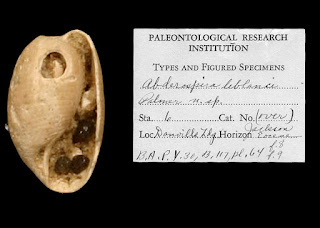 PALEONTOLOGICAL RESEARCH
INSTITUTION
TYPES AND FIGURED SPECIMENS
Abderospira leblanci
Palmer n. sp.
Sta. 6 Cat. No. (over)
Loc. Danville Ldg. Horizon Jackson
Eocene
B.A.P. V. 30, B. 117, pl. 64
f. 8
f. 9